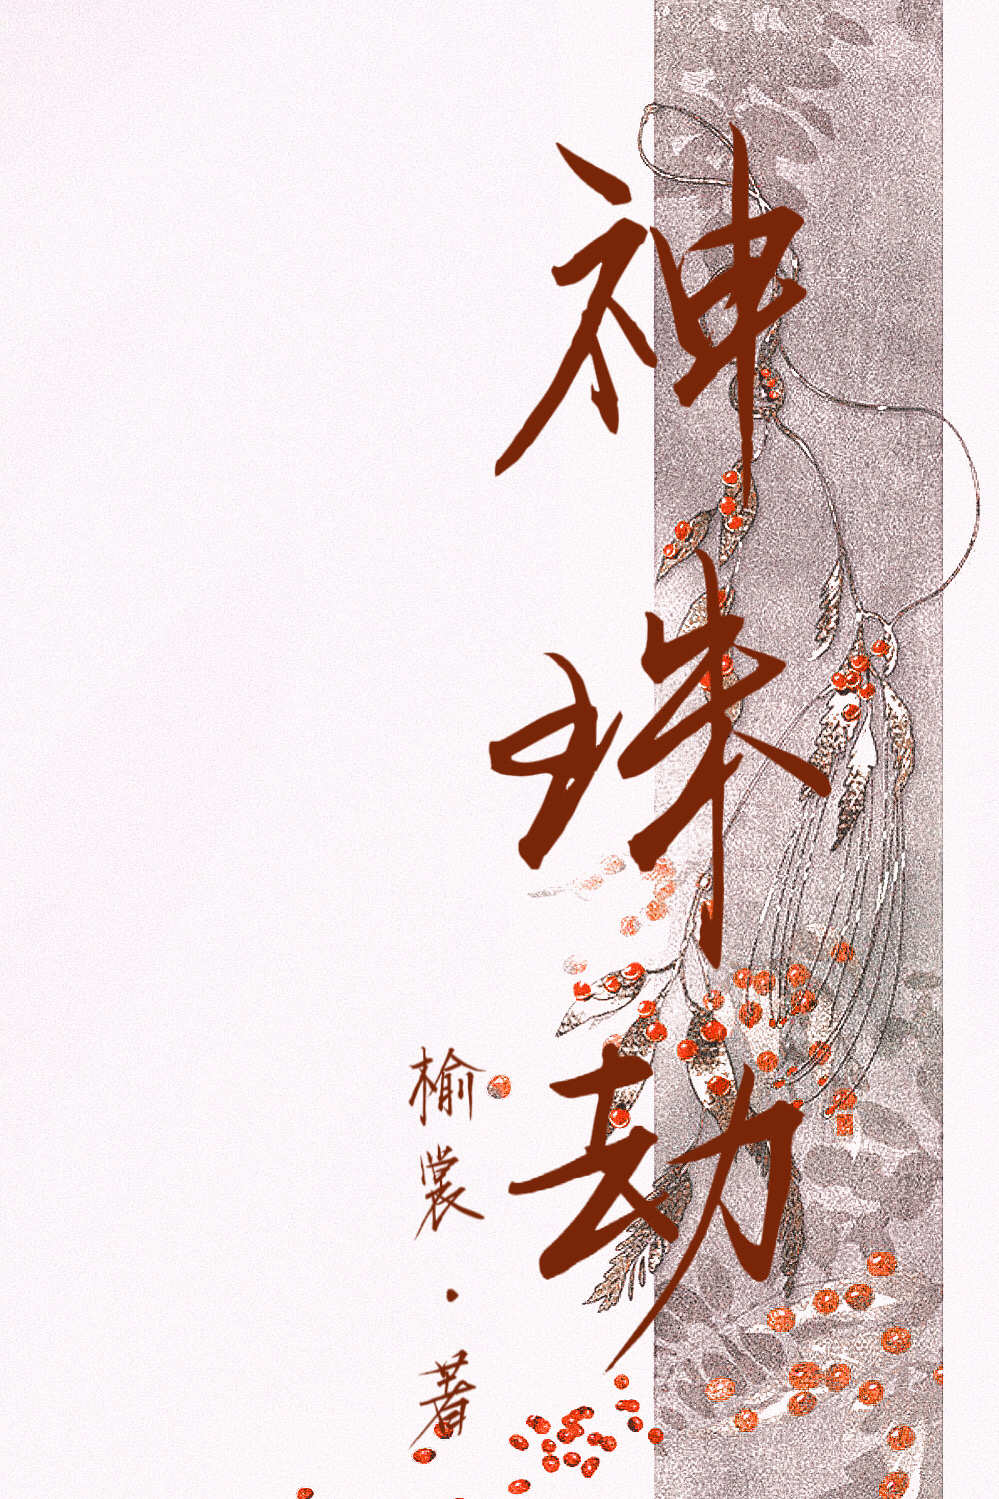 神珠劫
榆裳·著